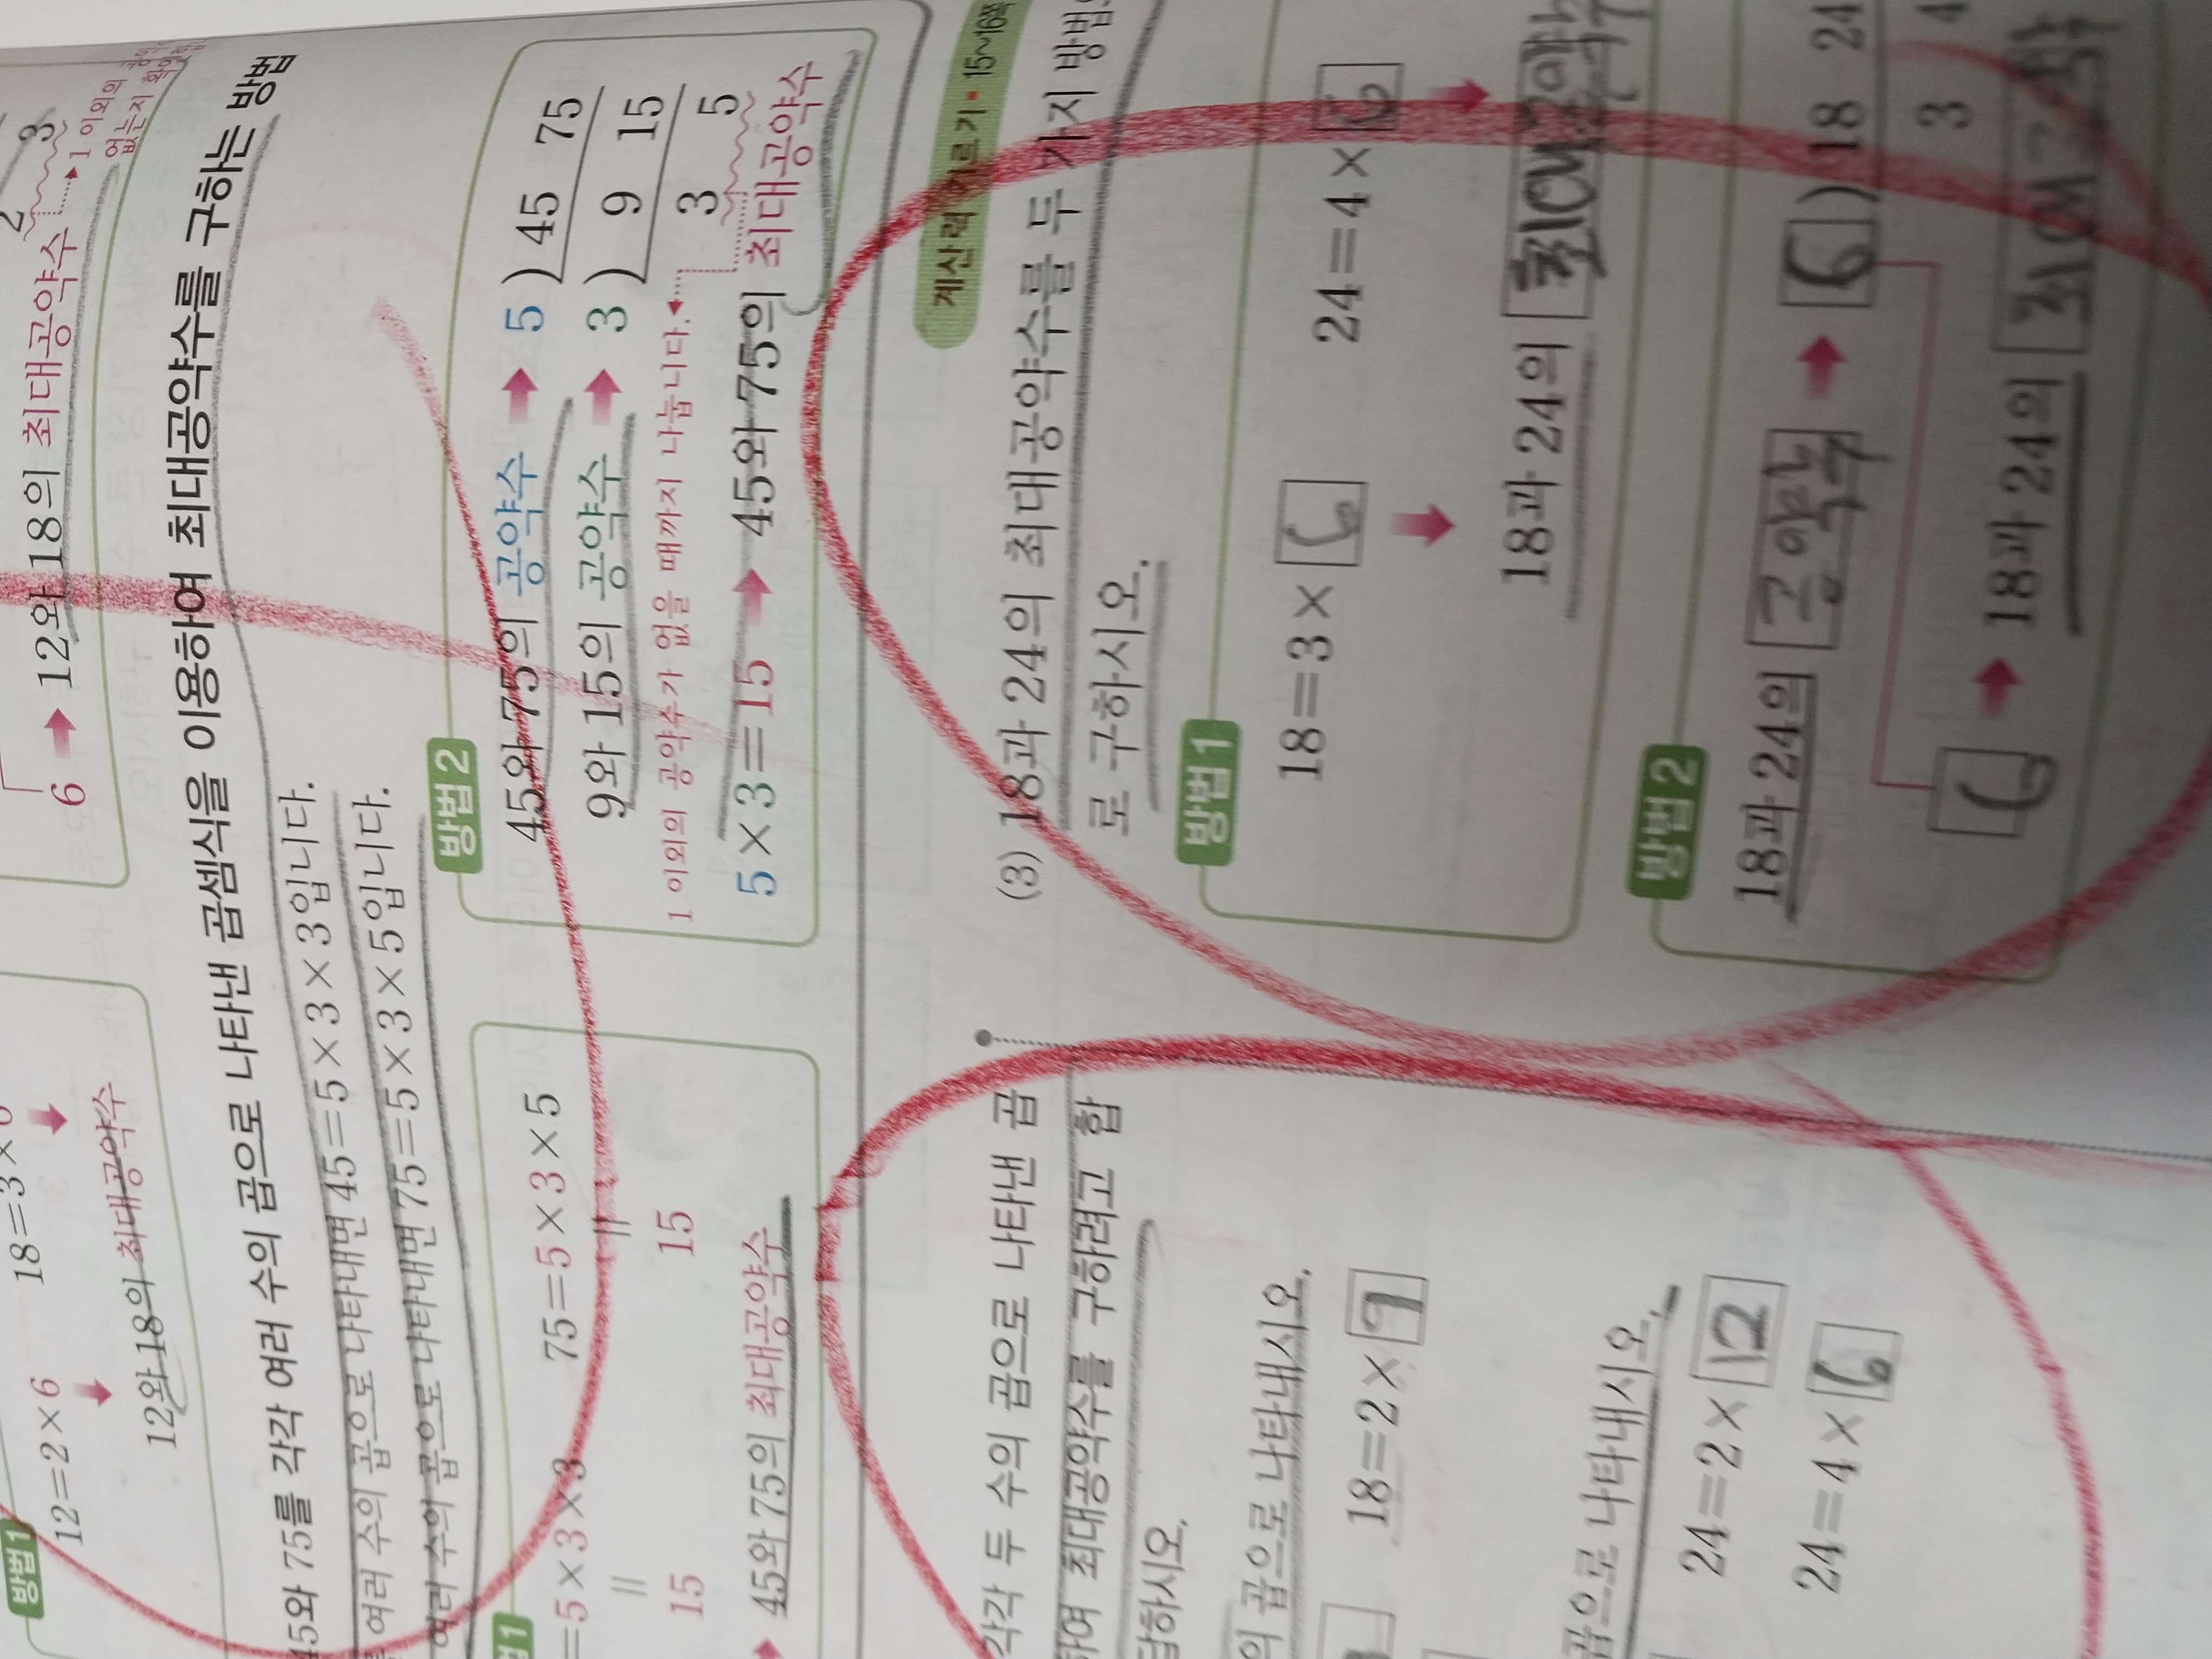 18=3×6
12=2×6
12와 18의 최대공약수
방법 1
2 3
1 이외의
없는지
6 → 12와 18의 최대공약수
45와 75를 각각 여러 수의 곱으로 나타낸 곱셈식을 이용하여 최대공약수를 구하는 방법
여러 수의 곱으로 나타내면 45=5×3×3입니다.
여러 수의 곱으로 나타내면 75=5×3×5입니다.
1
=5×3×3 75=5×3×5
15 15
45와 75의 최대공약수
방법 2
45와 75의 공약수 → 5 ) 45 75
9와 15의 공약수 → 3 ) 9 15
3 5
1 이외의 공약수가 없을 때까지 나눕니다.
5×3=15 → 45와 75의 최대공약수
각각 두 수의 곱으로 나타낸 곱
하여 최대공약수를 구하려고 합
답하시오.
의 곱으로 나타내시오.
18=2×
곱으로 나타내시오.
24=2×12
24=4×6
계산력 키르기 · 15~16쪽
(3) 18과 24의 최대공약수를 두 가지 방법으
로 구하시오.
방법 1
18=3×6 24=4×6
18과 24의 최대공약수
방법 2
18과 24의 공약수 → 6 ) 18 24
3 4
6 → 18과 24의 최대공약수